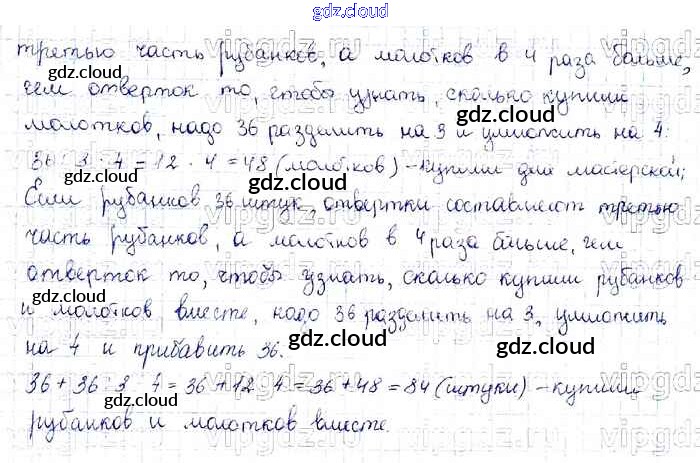 gdz.cloud
третью часть рубанков, а молотков в 4 раза больше,
чем отверток то, чтобы узнать, сколько купили
молотков, надо 36 разделить на 3 и умножить на 4:
36 : 3 · 4 = 12 · 4 = 48 (молотков) – купили для мастерской;
Если рубанков 36 штук, отвертки составляют третью
часть рубанков, а молотков в 4 раза больше, чем
отверток то, чтобы узнать, сколько купили рубанков
и молотков вместе, надо 36 разделить на 3, умножить
на 4 и прибавить 36.
36 + 36 : 3 · 4 = 36 + 12 · 4 = 36 + 48 = 84 (штуки) – купили
рубанков и молотков вместе.